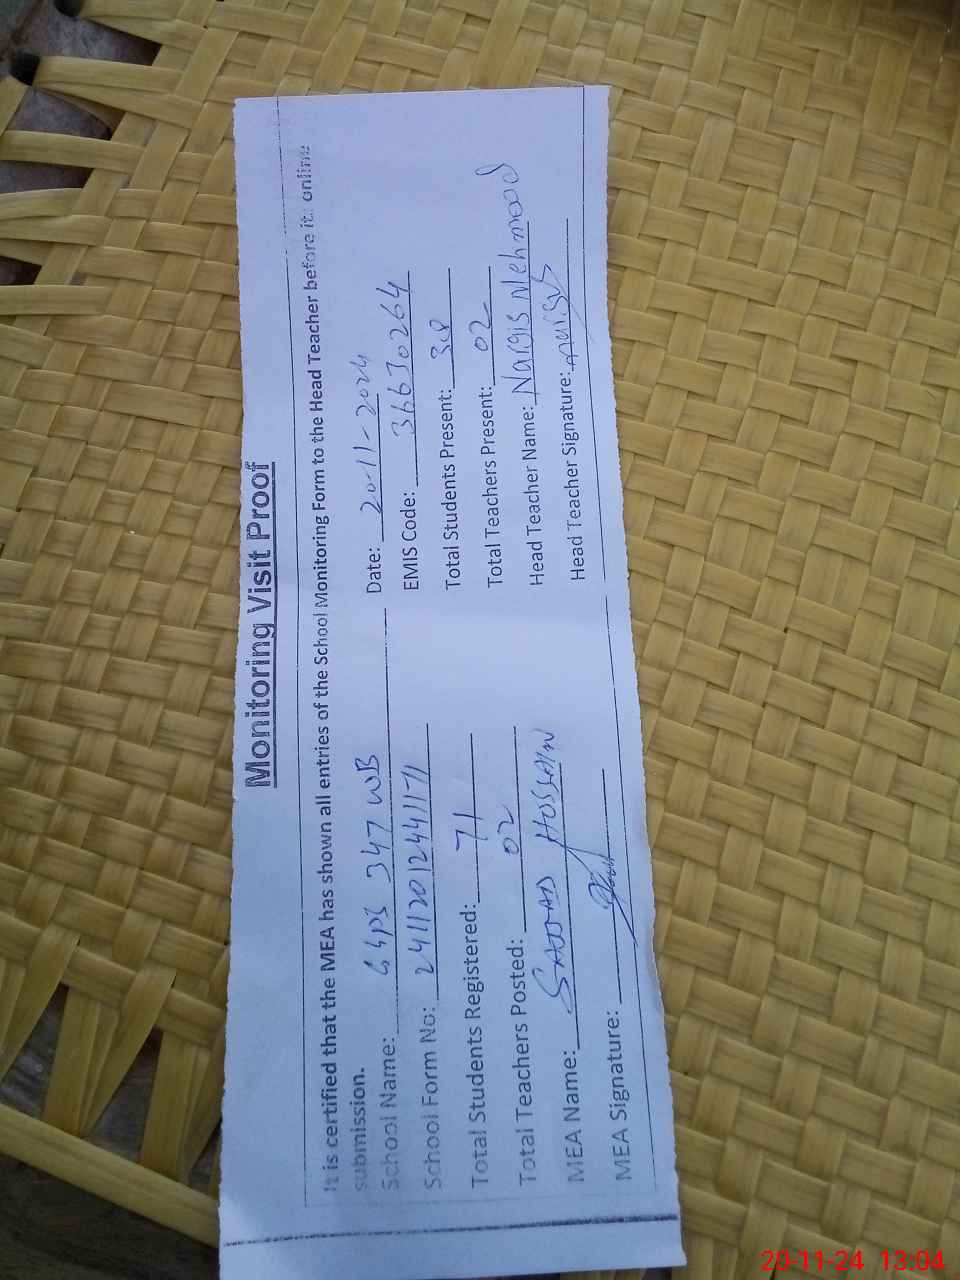 Monitoring Visit Proof
It is certified that the MEA has shown all entries of the School Monitoring Form to the Head Teacher before it. online
submission.
School Name: GGPS 347 WB Date: 20-11-2024
School Form No: 241120124411 71 EMIS Code: 36630264
Total Students Registered: 71 Total Students Present: 38
Total Teachers Posted: 02 Total Teachers Present: 02
MEA Name: HUSSAIN Head Teacher Name: Nargis Mehmood
MEA Signature: Head Teacher Signature:
20-11-24 13:04